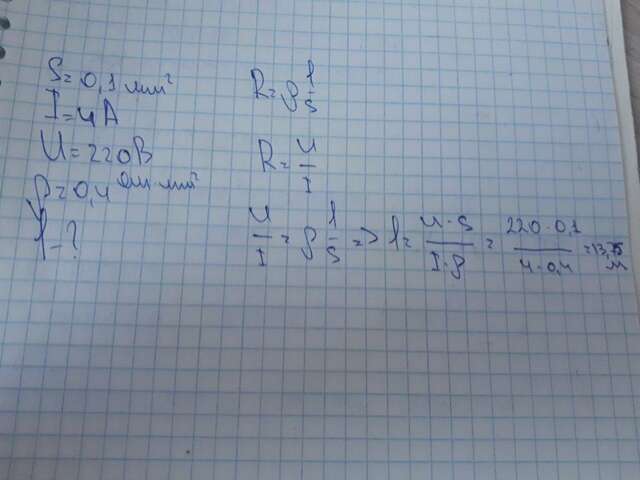 S=0,1 мм²
I=4А
U=220В
ρ=0,4 Ом·мм²
l-?
R=ρ l/S
R=U/I
U/I=ρ l/S => l= U·S/I·ρ = 220·0,1/4·0,4 =13,75 м